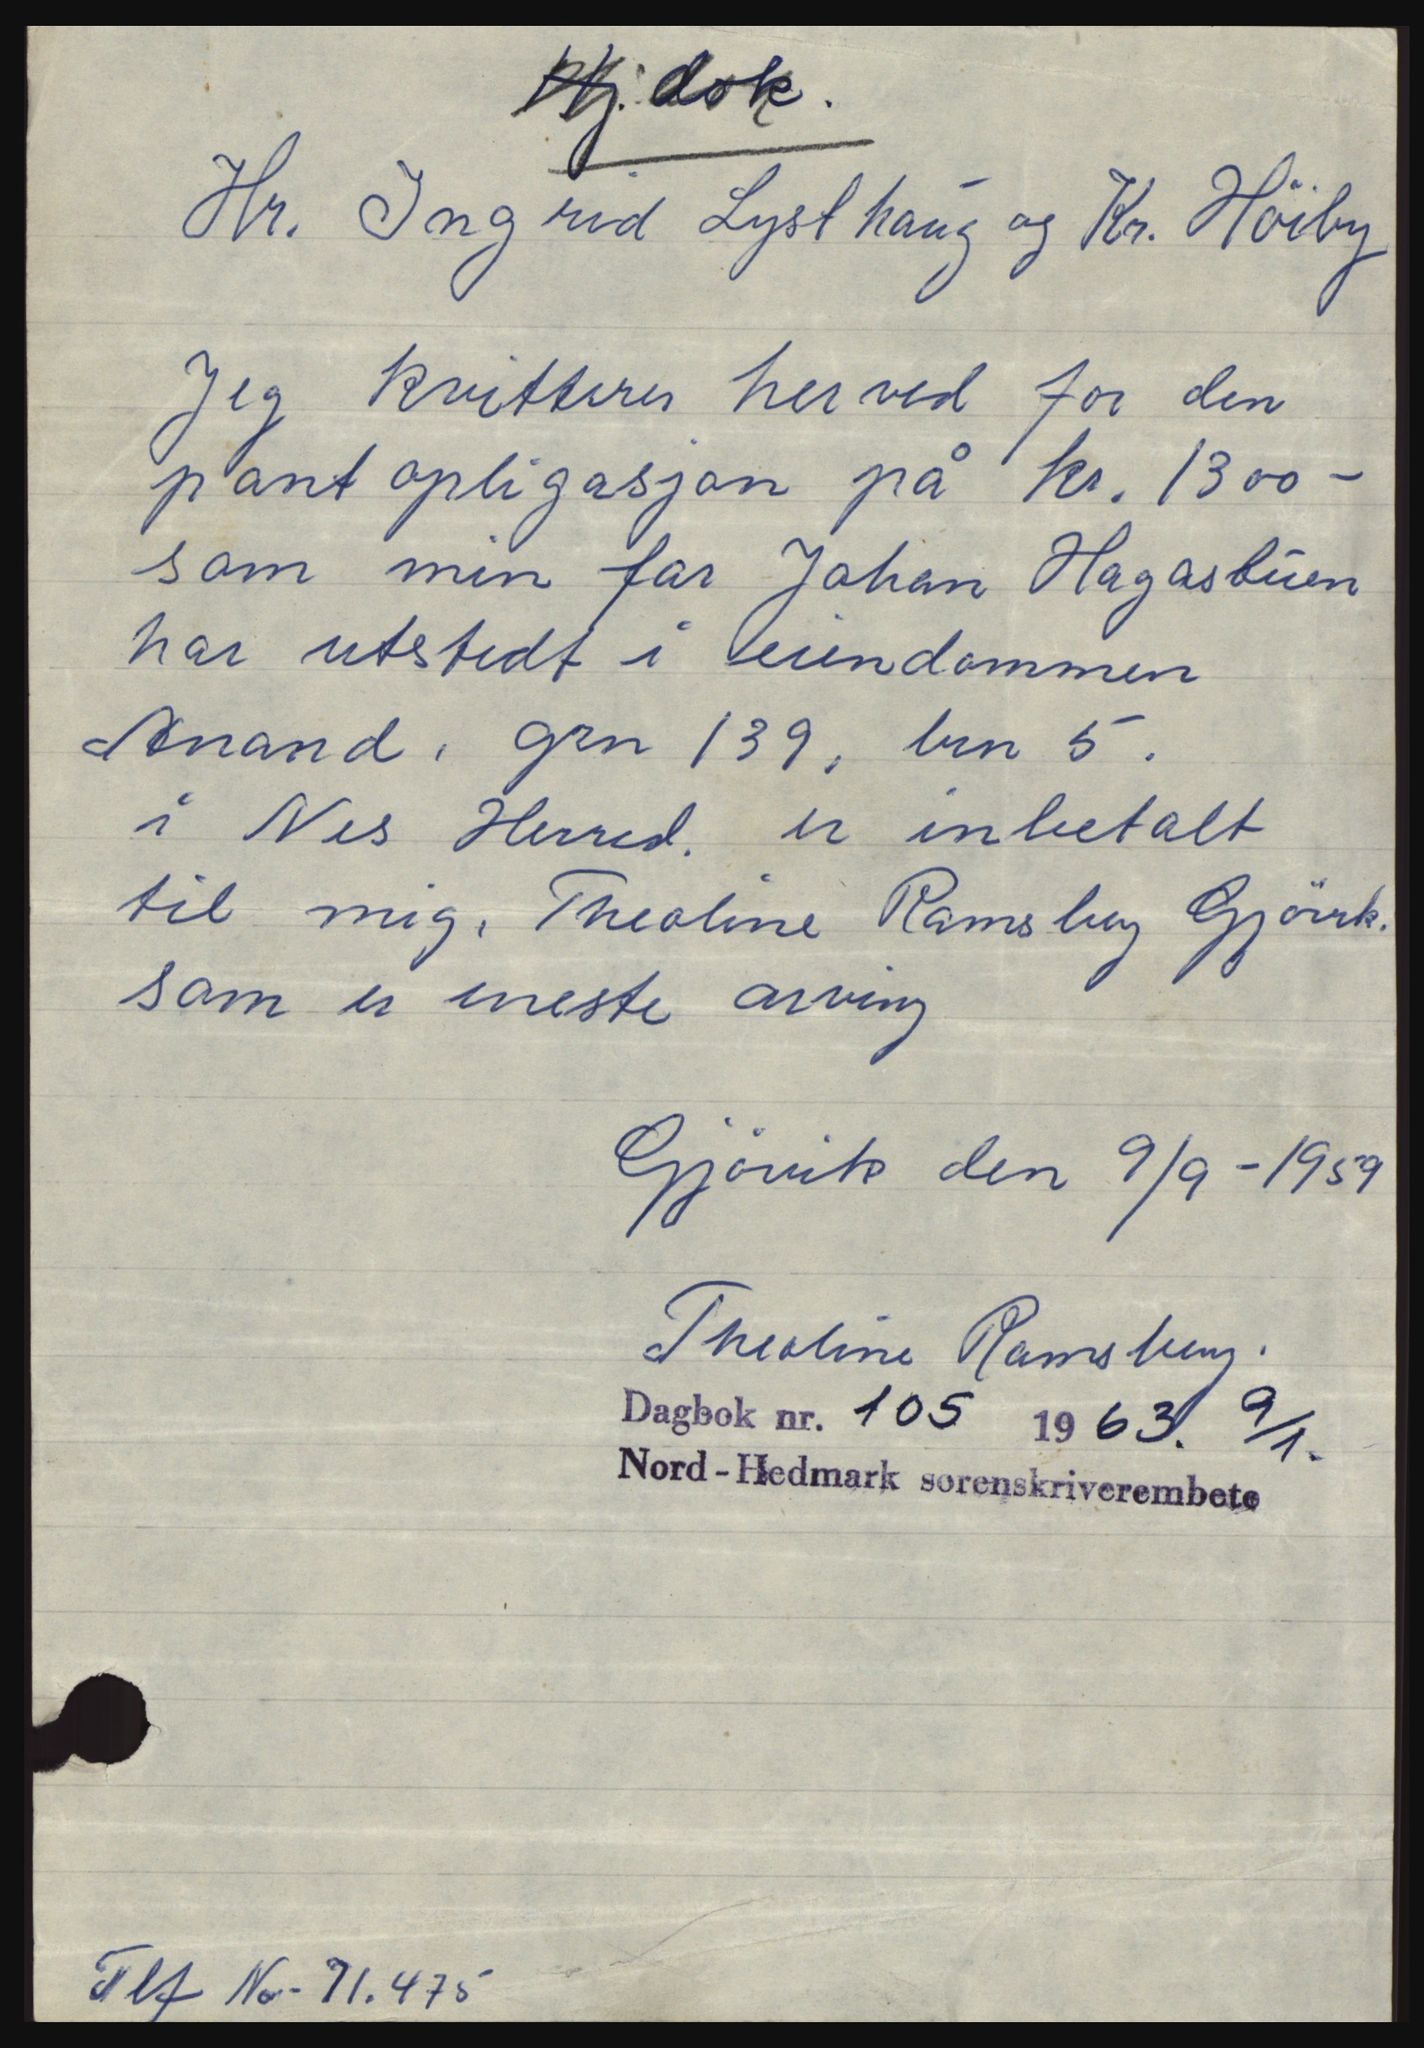 Hj. dok.
Hr. Ingrid Lysthaug og Kr. Höiby
Jeg kvitterer herved for den
pantopligasjon på kr. 1300-
som min far Johan Hagasbúen
har utstedt i eiendommen
Anand, grn 139, brn 5.
i Nes Herred. er inbetalt
til mig, Theoline Ramsberg Gjövik.
som er eneste arving
Gjövik den 9/9-1959
Theoline Ramsberg.
Dagbok nr. 105 1963. 9/1.
Nord-Hedmark sorenskriverembete
Tlf No- 71.475